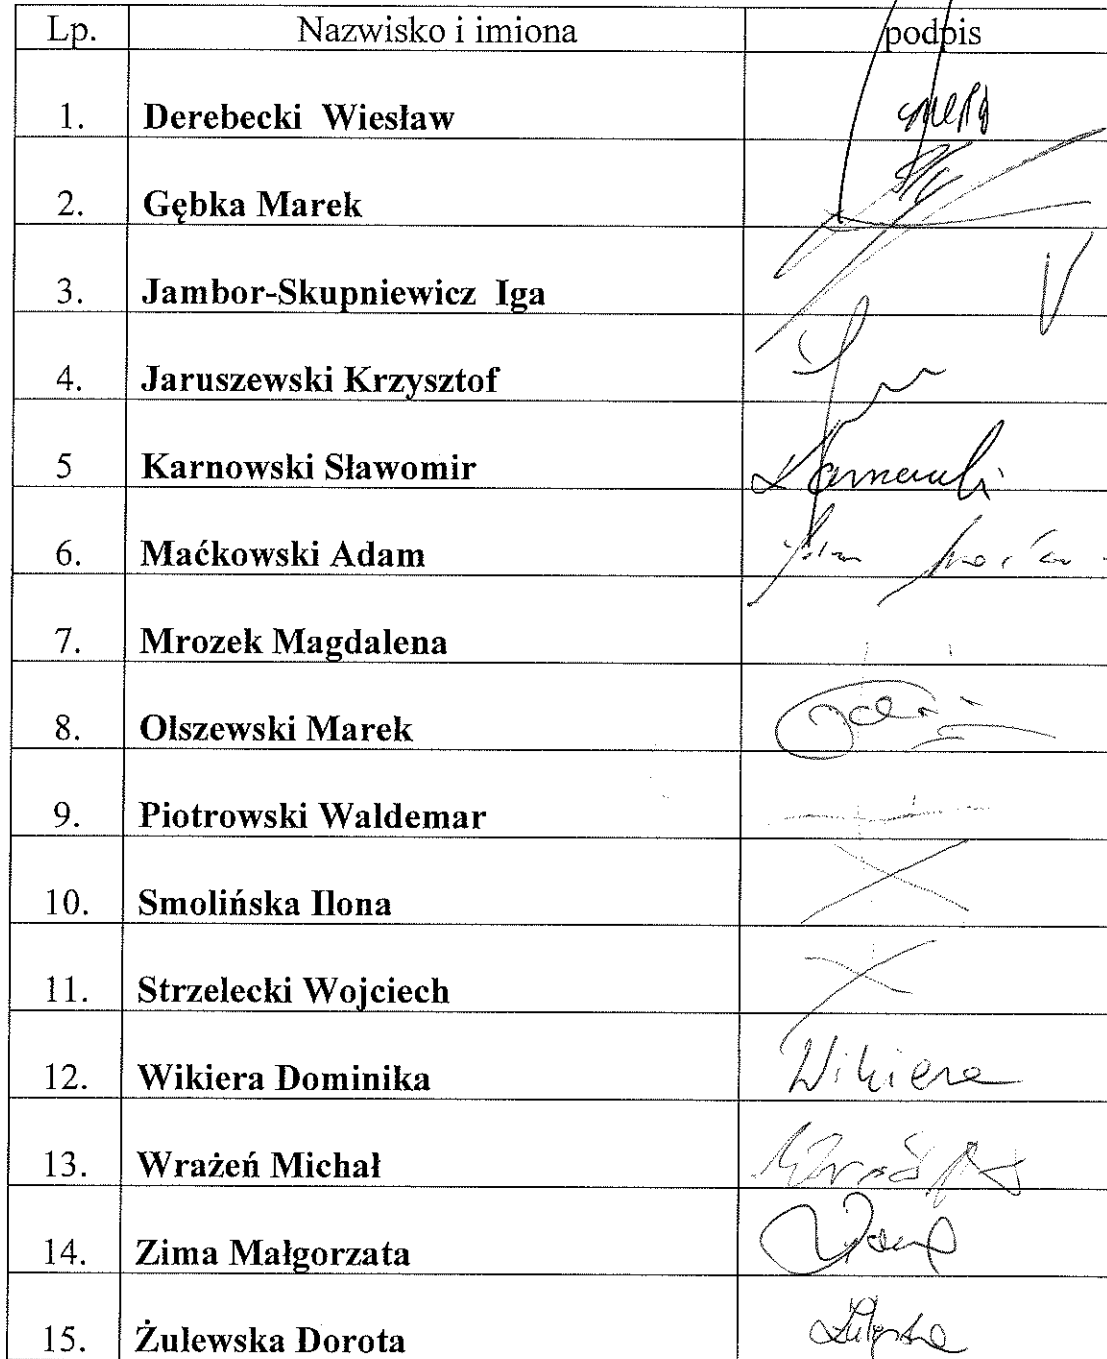 Lp. Nazwisko i imiona podpis
1. Derebecki Wiesław
2. Gębka Marek
3. Jambor-Skupniewicz Iga
4. Jaruszewski Krzysztof
5 Karnowski Sławomir Karnowski
6. Maćkowski Adam
7. Mrozek Magdalena
8. Olszewski Marek
9. Piotrowski Waldemar
10. Smolińska Ilona
11. Strzelecki Wojciech
12. Wikiera Dominika Wikiera
13. Wrażeń Michał
14. Zima Małgorzata
15. Żulewska Dorota